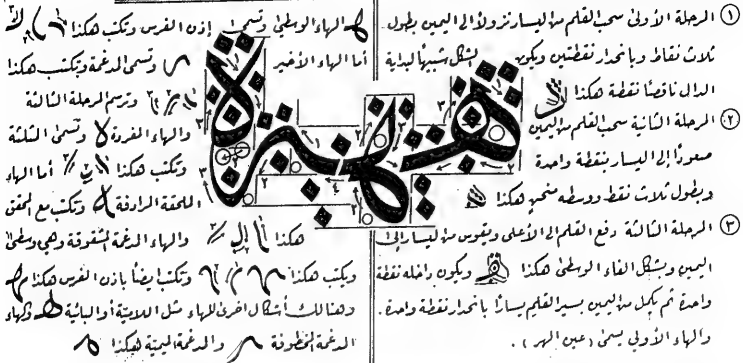 ① المرحلة الأولى سحب القلم من اليسار نزولاً إلى اليمين بطول
ثلاث نقاط وبانحدار نقطتين ويكون بشكل شبيهاً لبداية
الدال ناقصاً نقطة هكذا
② المرحلة الثانية سحب القلم من اليمين
صعوداً إلى اليسار بنقطة واحدة
وبطول ثلاث نقط ووسطه منحنٍ هكذا
③ المرحلة الثالثة دفع القلم إلى الأعلى ويقوس من اليسار إلى
اليمين وبشكل الفاء الوسطى هكذا ويكون داخله نقطة
واحدة ثم يكمل من اليمين بسير القلم يساراً بانحدار نقطة واحدة.
والهاء الأولى يسمى (عين الهر).
الهاء الوسطى وتسمى إذن الفرس وتكتب هكذا
أما الهاء الأخير وتسمى الدغمة وتكتب هكذا
وترسم المرحلة الثالثة
والهاء الفردة وتسمى الثلثة
وتكتب هكذا أما الهاء
الملحقة الرادفة وتكتب مع المحقق
هكذا والهاء الدغمة المشقوقة وهي وسطى
ويكتب هكذا وتكتب ايضاً باذن الفرس هكذا
وهنالك أشكال اخرى للهاء مثل اللامية أو البائية وكهاء
الدغمة المخطوفة والدغمة الميمية هكذا